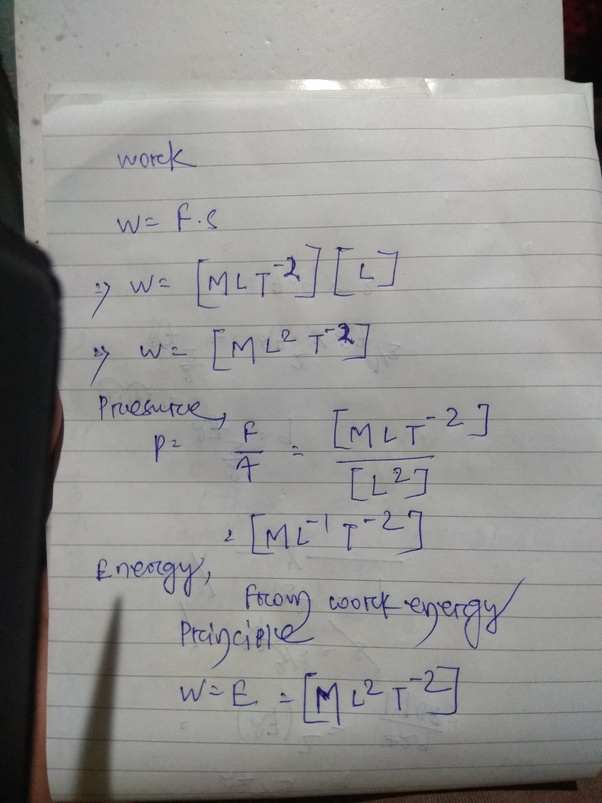 Work
W= F.S
⇒ W= [MLT⁻²] [L]
⇒ W= [ML² T⁻²]
Pressure,
P= F/A = [MLT⁻²]/[L²]
= [ML⁻¹ T⁻²]
Energy,
From work energy
Principle
W=E = [ML² T⁻²]